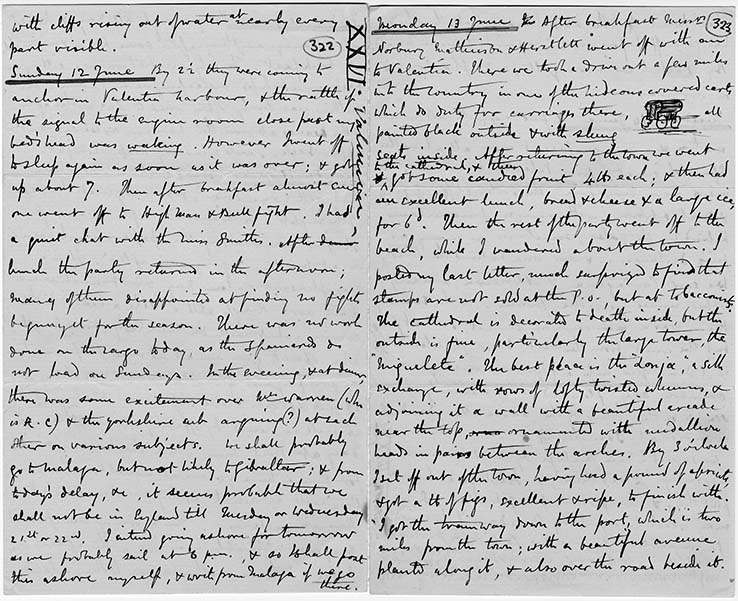 with cliffs rising out of water at nearly every
part visible.
322
XXVI. Valencia
Sunday 12 June By 2½ they were coming to
anchor in Valentia harbour, & the rattle of
the signal to the engine room close past my
bed's head was waking. However I went off
to sleep again as soon as it was over; & got
up about 7. Then after breakfast almost every
one went off to High Mass & Bull fight. I had
a quiet chat with the Miss Smiths. After
lunch the party returned in the afternoon;
many of them disappointed at finding no fights
begun yet for the season. There was no work
done on the cargo today, as the Spaniards do
not load on Sundays. In the evening, & at dinner,
there was some excitement over Mrs Warren (who
is R.C) & the Yorkshire sub arguing(?) at each
other on various subjects. We shall probably
go to Malaga, but not likely to Gibraltar; & from
today's delay, &c, it seems probable that we
shall not be in England till Tuesday or Wednesday
21st or 22nd. I intend going ashore for tomorrow
as we probably sail at 6 p.m., & so I shall post
this ashore myself, & write from Malaga if we go
there.
Monday 13 June After breakfast Messrs
323
Norbury Mathinson & Herstlett went off with me
to Valentia. There we took a drive out a few miles
into the country in one of the hideous covered carts
which do duty for carriages there, all
painted black outside & with slung
seats inside. After returning to the town we went
to the cathedral, & then
got some candied fruit 4d each; & then had
an excellent lunch, bread & cheese & a large ice,
for 6d. Then the rest of the party went off to the
beach, while I wandered about the town. I
posted my last letter, much surprized to find that
stamps are not sold at the P.O., but at tobacconists.
The cathedral is decorated to death inside, but the
outside is fine, particularly the large tower, the
"Miguelete". The best place is the "Lonja", a silk
exchange, with rows of lofty twisted columns, &
adjoining it a wall with a beautiful arcade
near the top, ornamented with medallion
heads in pairs between the arches. By 3 o'clock
I set off out of the town, having had a pound of apricots,
& got a lb of figs, excellent & ripe, to finish with.
I got the tramway down to the port, which is two
miles from the town; with a beautiful avenue
planted along it, & also over the road beside it.